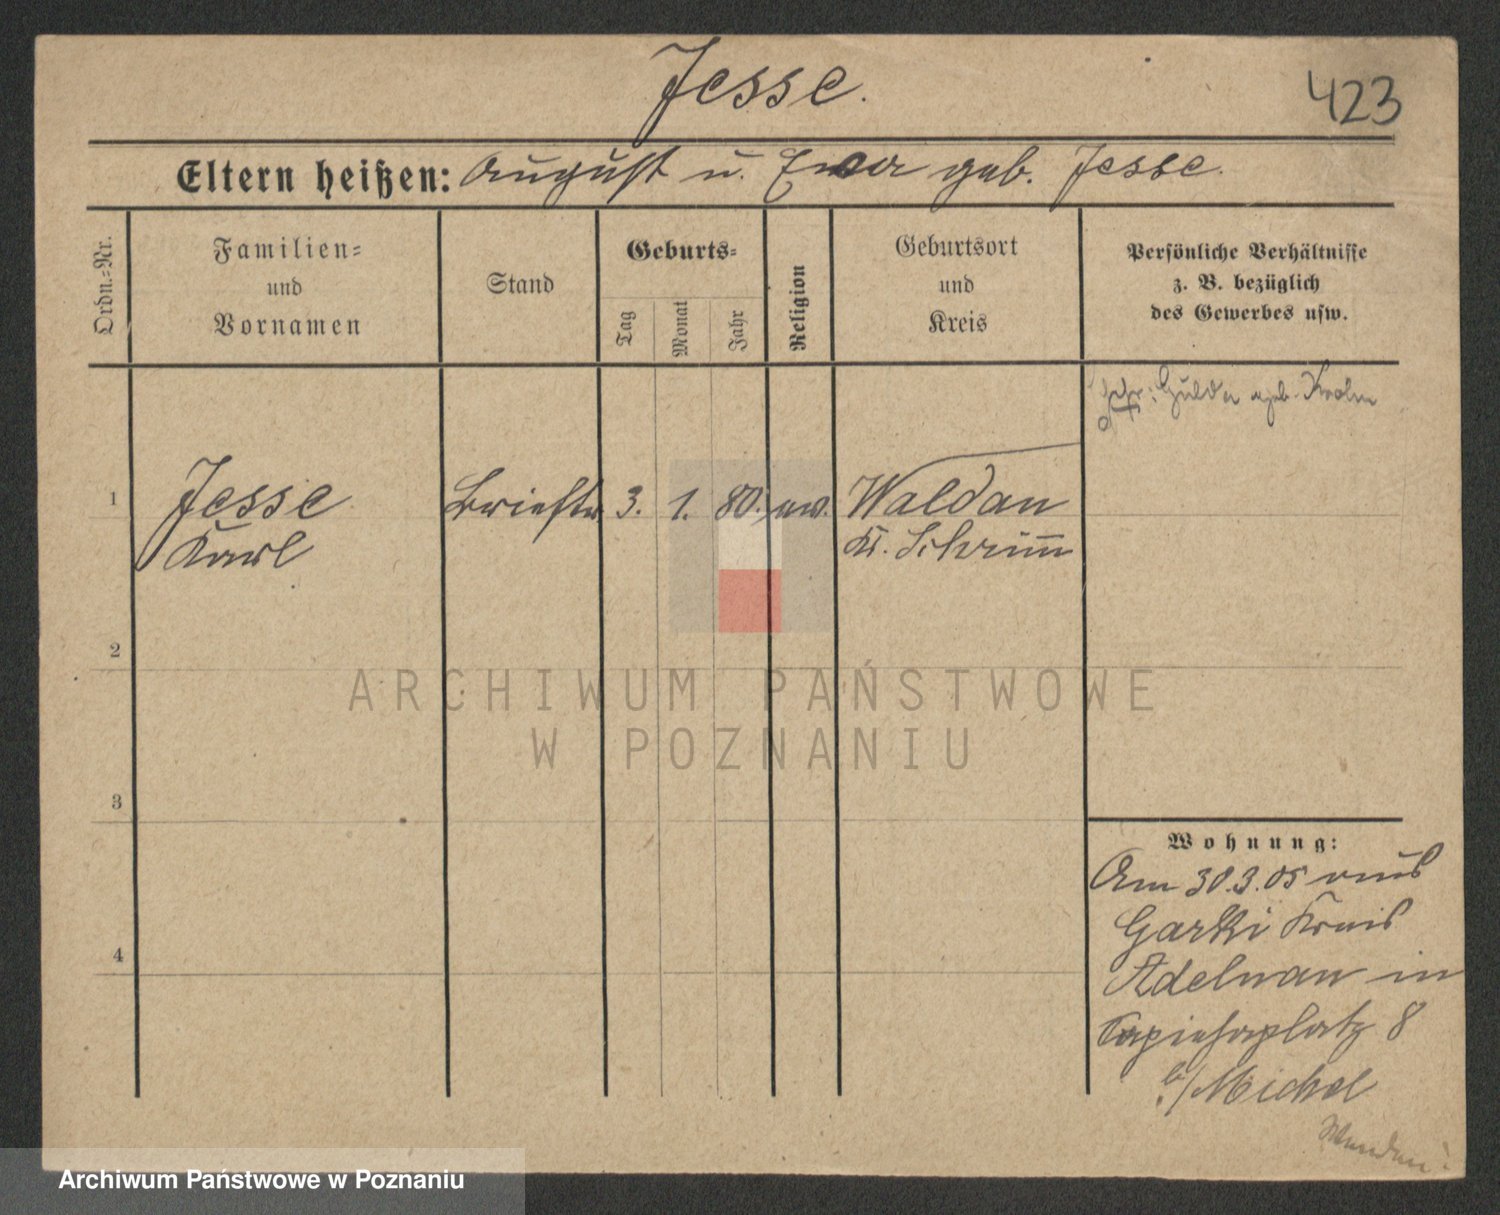 Jesse.
423
Eltern heißen: August u. Ewa geb. Jesse.
Ordn.=Nr.
Familien=
und
Vornamen
Stand
Geburts=
Tag
Monat
Jahr
Religion
Geburtsort
und
Kreis
Persönliche Verhältnisse
z. B. bezüglich
des Gewerbes usw.
Ehefr: Hulda geb. Krolm
1 Jesse Brieftr 3. 1. 80. ev. Waldau
Karl Kr. Schrimm
2
3
4
ARCHIWUM PAŃSTWOWE
W POZNANIU
Wohnung:
Am 30.3.05 aus
Garki Kreis
Adelnau in
Sapiehaplatz 8
b/Michel
Archiwum Państwowe w Poznaniu